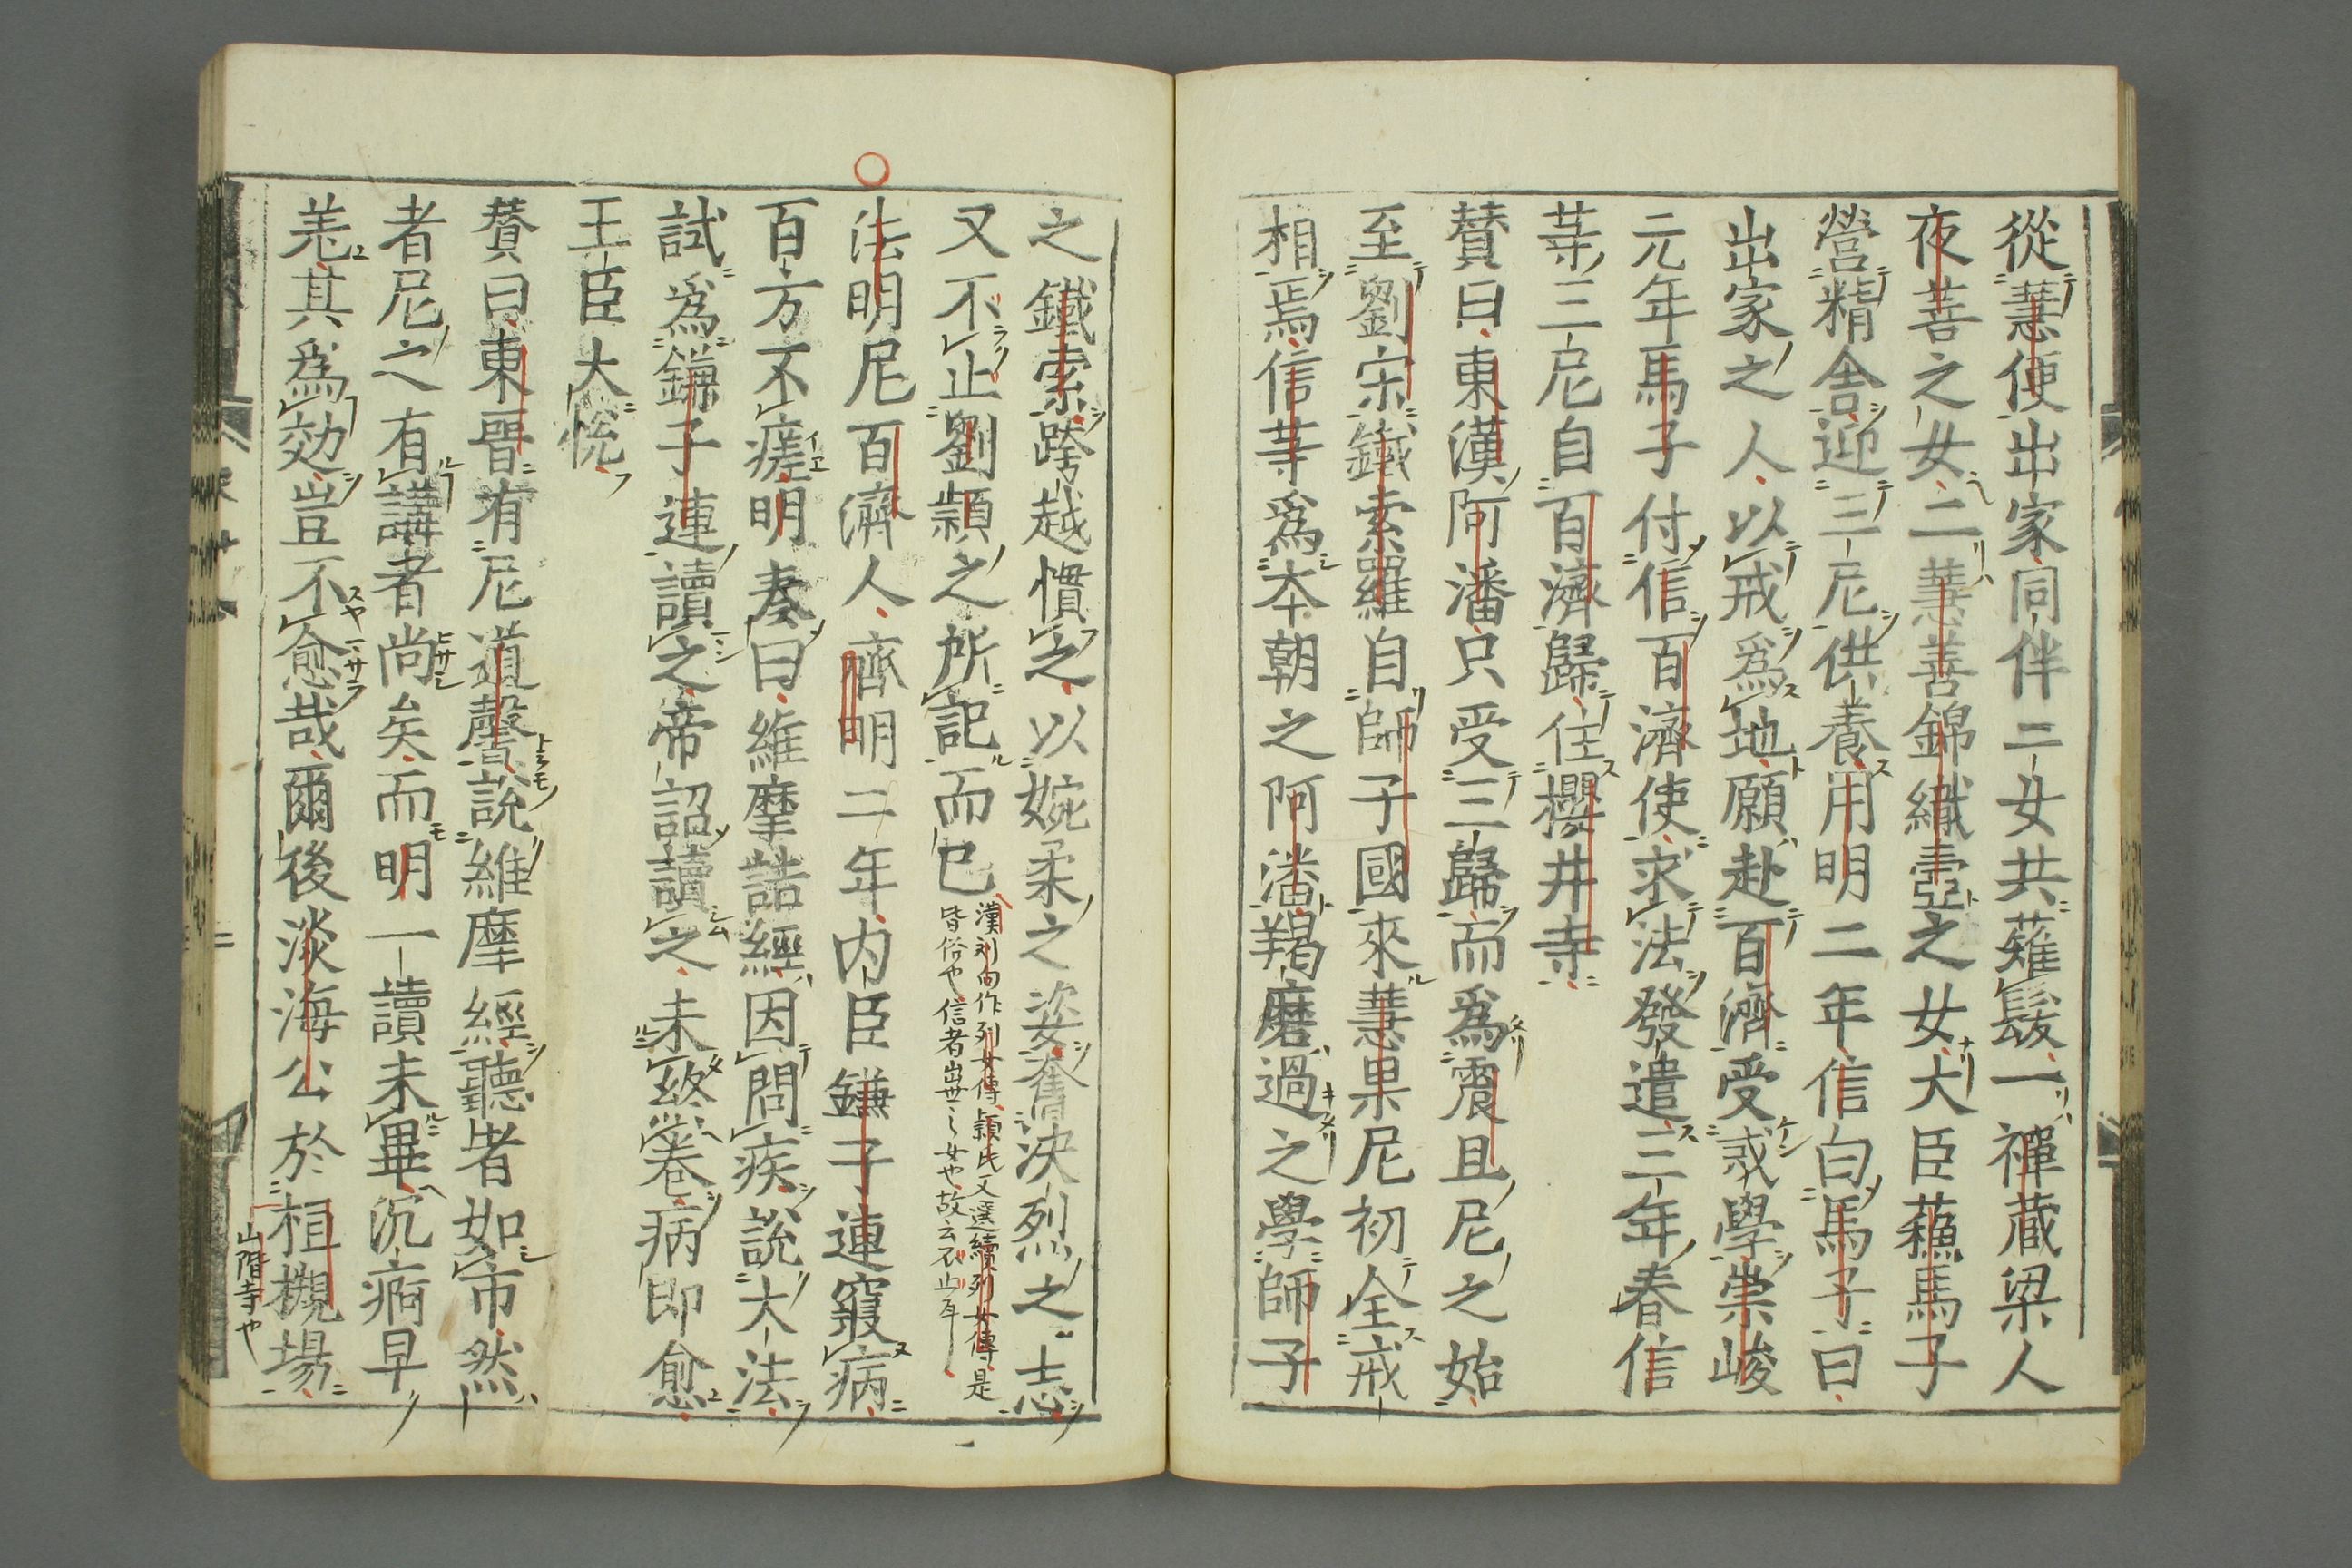 從慧便出家同伴二女共薙髮一禪藏梁人
夜菩之女二慧善錦織壼之女大臣蘓馬子
營精舍迎三尼供養用明二年信白馬子曰
出家之人以戒爲地願赴百濟受戒學崇峻
元年馬子付信百濟使求法發遣三年春信
䓁三尼自百濟歸住櫻井寺
賛曰東漢阿潘只受三歸而爲震旦尼之始
至劉宋鐵索羅自師子國來慧果尼初全戒
相焉信䓁爲本朝之阿潘羯磨過之學師子
之鐵索跨越慣之以婉柔之姿奮決烈之志
又不止劉頴之所記而已
漢刘向作列女傳頴氏又選續列女傳是
皆俗也信者出世之女也故云不止耳
法明尼百濟人齊明二年内臣鎌子連寢病
百方不瘥明奏曰維摩詰經因問疾說大法
試爲鎌子連讀之帝詔讀之未終卷病即愈
王臣大悅
賛曰東晉有尼道馨說維摩經聽者如市然
者尼之有講者尚矣而明一讀未畢沉痾早
羌其爲効豈不愈哉爾後淡海公於植槻場
山階寺也